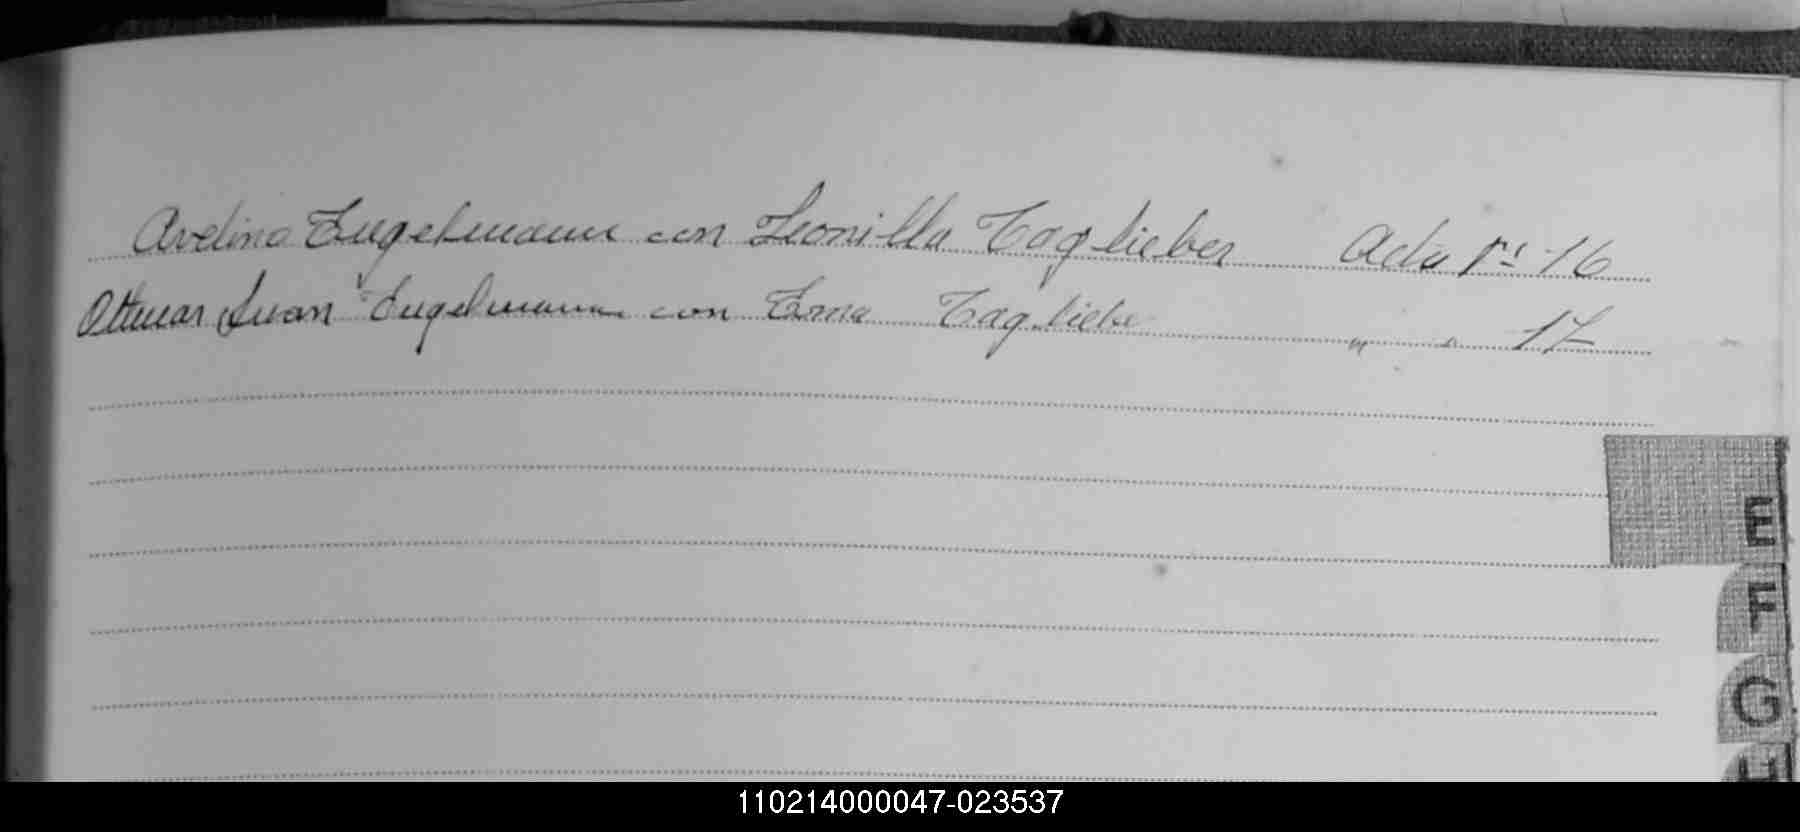 Avelino Engelmann con Leonilla Taglieber Acta Nº 16
Ottmar Juan Engelmann con Erna Tagliebe " " 17
E
F
G
H
110214000047-023537